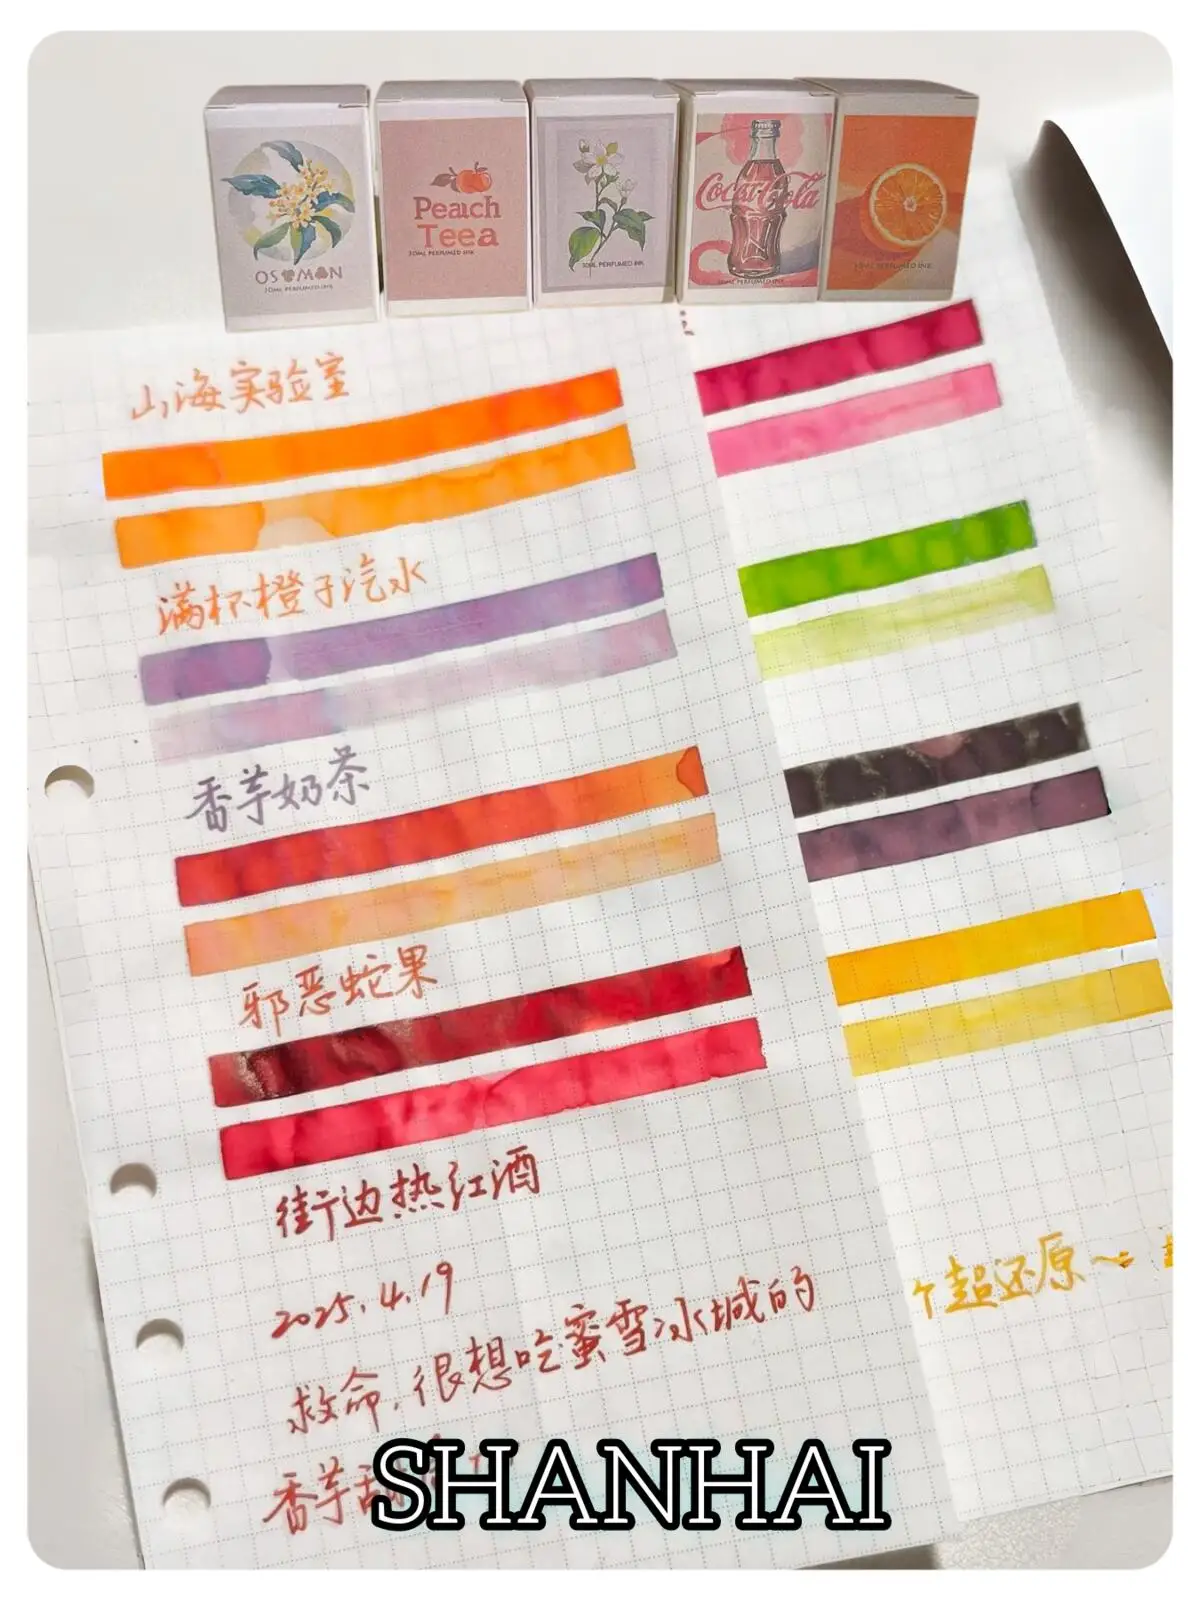 OSMAN
30ML PERFUMED INK
Peach
Teea
30ML PERFUMED INK
30ML PERFUMED INK
Coca-Cola
30ML PERFUMED INK
30ML PERFUMED INK
山海实验室
满杯橙子汽水
香芋奶茶
邪恶蛇果
街边热红酒
2025.4.19
救命,很想吃蜜雪冰城的
香芋
个超还原~
SHANHAI